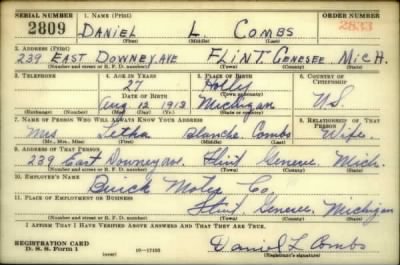 SERIAL NUMBER 1. NAME (Print) ORDER NUMBER
2809 DANIEL L. COMBS 2833
(First) (Middle) (Last)
2. ADDRESS (Print)
239 EAST DOWNEY AVE FLINT GENESEE MICH.
(Number and street or R. F. D. number) (Town) (County) (State)
3. TELEPHONE 4. AGE IN YEARS 5. PLACE OF BIRTH 6. COUNTRY OF CITIZENSHIP
27 Holly
DATE OF BIRTH (Town or county)
Aug. 12 1913 Michigan U.S.
(Exchange) (Number) (Mo.) (Day) (Yr.) (State or country)
7. NAME OF PERSON WHO WILL ALWAYS KNOW YOUR ADDRESS 8. RELATIONSHIP OF THAT PERSON
Mrs Letha Blanche Combs Wife.
(Mr., Mrs., Miss) (First) (Middle) (Last)
9. ADDRESS OF THAT PERSON
239 East Downey av. Flint Genesee Mich.
(Number and street or R. F. D. number) (Town) (County) (State)
10. EMPLOYER'S NAME
Buick Motor Co.
11. PLACE OF EMPLOYMENT OR BUSINESS
Flint, Genesee, Michigan
(Number and street or R. F. D. number) (Town) (County) (State)
I AFFIRM THAT I HAVE VERIFIED ABOVE ANSWERS AND THAT THEY ARE TRUE.
REGISTRATION CARD
D. S. S. Form 1 (over) 16—17105 Daniel L Combs
(Registrant's signature)